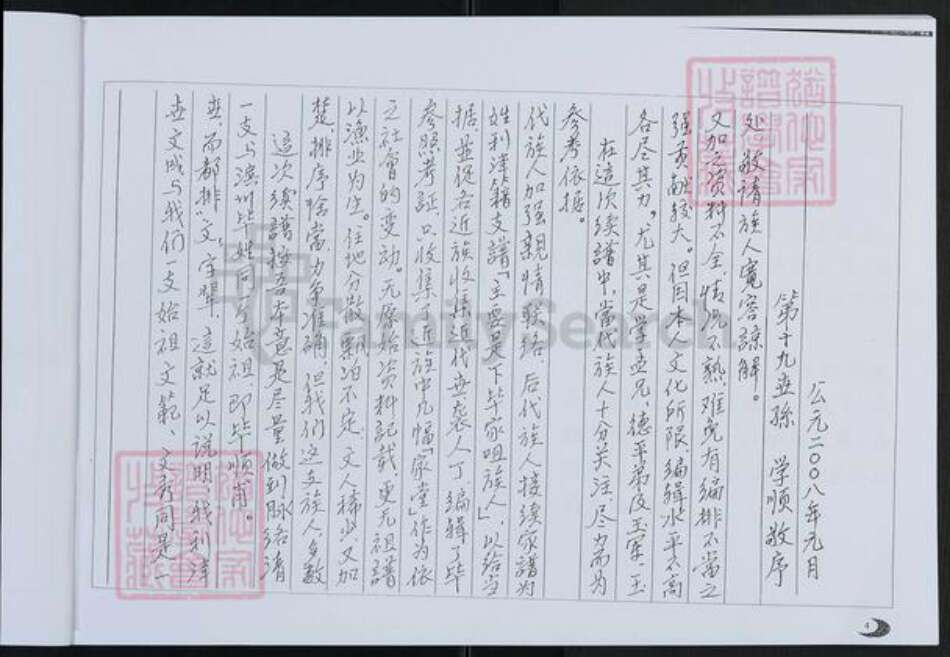 世文成与我们一支始祖文範、文彩同是一
世,而都排"文"字辈,這就足以说明我利津
一支与滨州毕姓同一始祖,即毕顺甫。
這次续譜极吾本意是尽量做到脉络清
楚,排序恰當,力争准确,但我们这支族人,多数
以渔业为生。住地分散飘泊不定,文人稀少,又加
之社會的变动。无原始资料记载,更无祖譜
参照考証,只收集了近族中几幅「家堂」作为依
据,並從各近族收集近代世袭人丁,编辑了毕
姓利津籍支譜「主要是下毕家咀族人」,以给当
代族人加强親情联络,后代族人接续家譜为
参考依据。
在這次续譜中,當代族人十分关注,尽力而为
各尽其力,尤其是学孟兄、德平弟及玉军、玉
强贡献较大。但因本人文化所限,编辑水平不高
又加之资料不全,情况不熟,难免有编排不當之
处,敬请族人寬容諒解。
第十九世孫 学順敬序
公元二00八年元月
猶他家譜學會收藏
猶他家譜學會收藏
FamilySearch
4